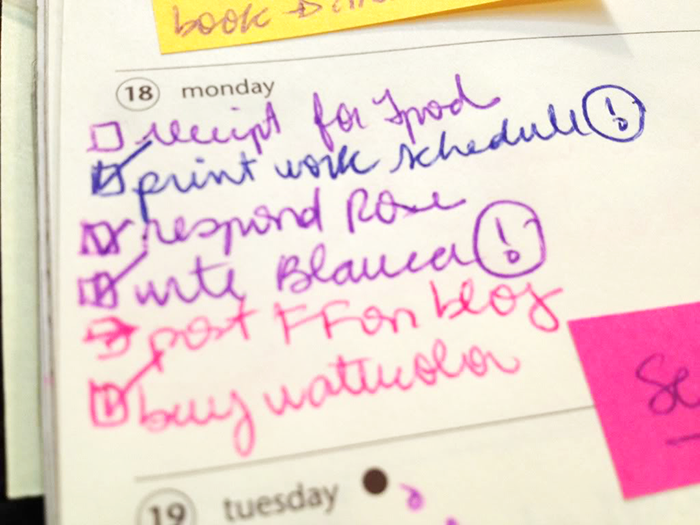 book
18 monday
receipt for Ipod
print work schedule !
respond Rose
write Blanca !
post FF on blog
buy watercolor
Se
19 tuesday